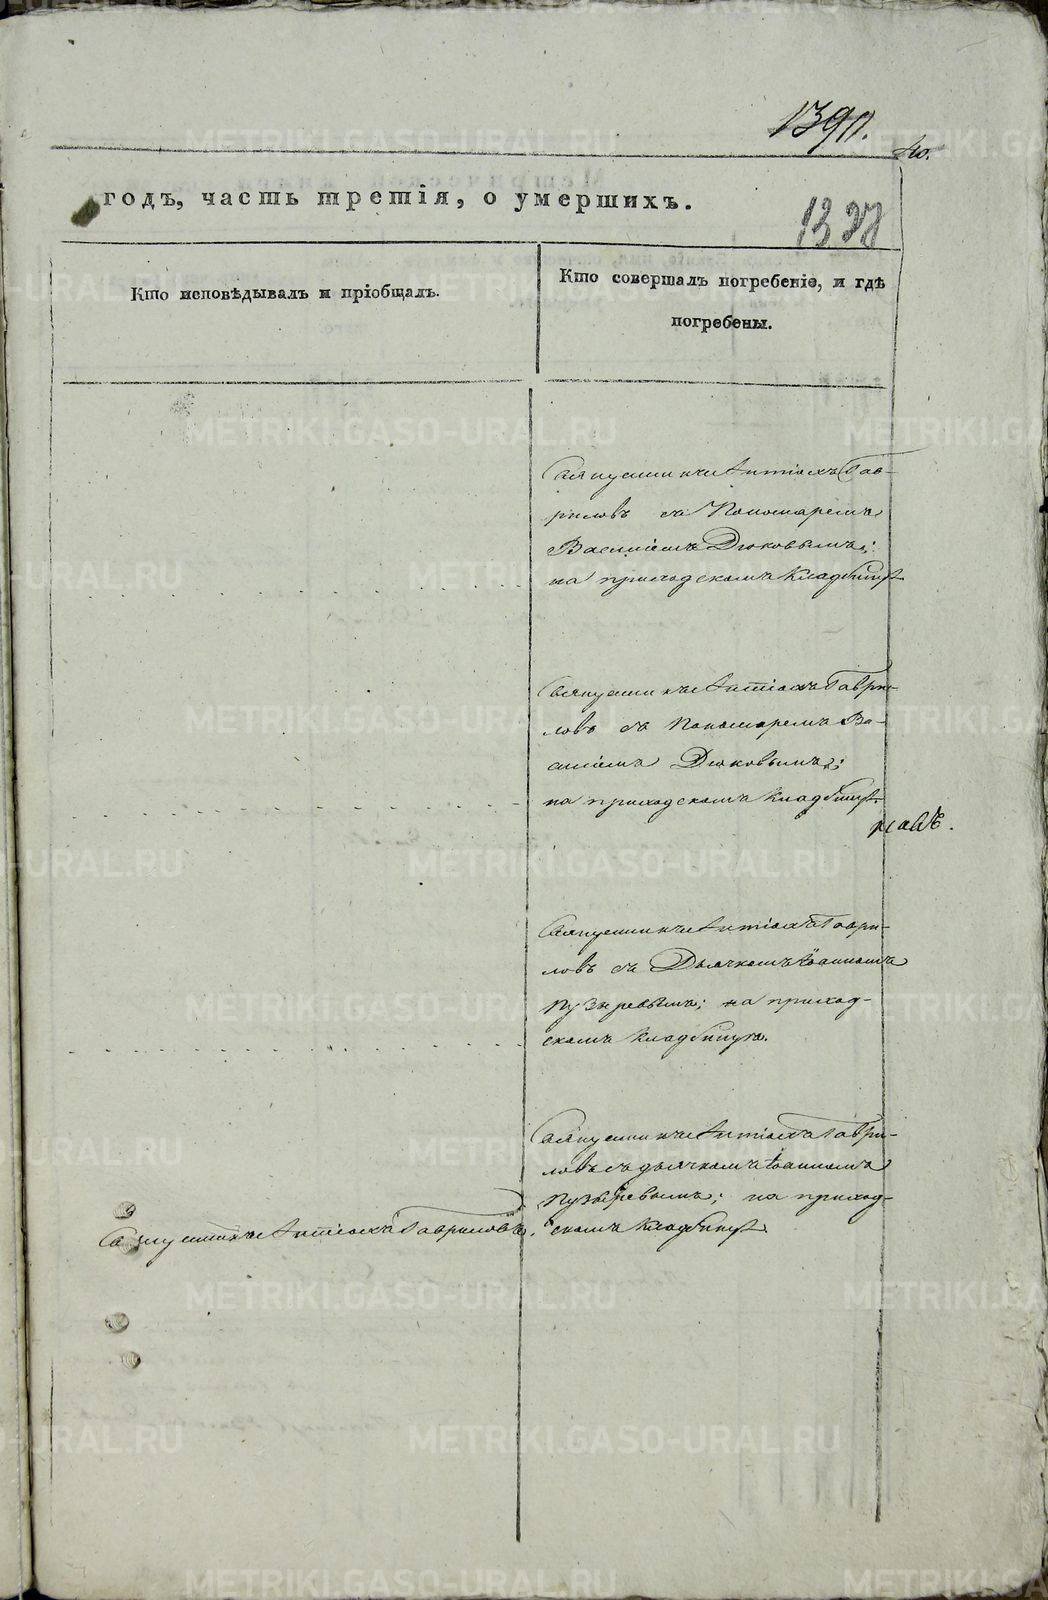 1390.
40.
годъ, часть третія, о умершихъ.
1327
Кто исповѣдывалъ и пріобщалъ.
Кто совершалъ погребеніе, и гдѣ
погребены.
Священникъ Антіохъ Гав-
риловъ съ Пономаремъ
Василіемъ Дюковымъ;
на приходскомъ кладбищѣ
Священникъ Антіохъ Гаври-
ловъ съ Пономаремъ Ва-
силіемъ Дюковымъ;
на приходскомъ кладбищѣ.
Священникъ Антіохъ Гаври-
ловъ съ Дьячкомъ Іоанномъ
Пузыревымъ; на приход-
скомъ кладбищѣ.
Священникъ Антіохъ Гаври-
ловъ съ дьячкомъ Іоанномъ
Пузыревымъ; на приход-
Священникъ Антіохъ Гавриловъ. скомъ кладбищѣ
METRIKI.GASO-URAL.RU